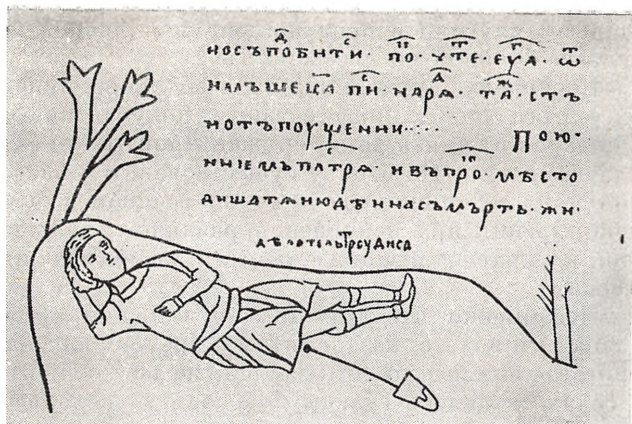 носъпобити· по· чте· еѵа· ѿ
налъшеца пи· нарѧ· та· стъ
нотъпоущении···· Пою·
ниемъплтрѧ· ивъпро· мѣсто
дишатѧнюдѣинасъмьрть· жи·
дѣлательтрудиса